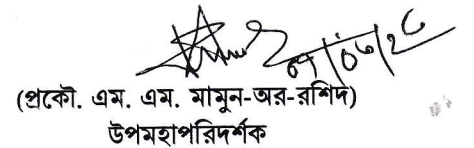 (প্রকৌ. এম. এম. মামুন-অর-রশিদ)
উপমহাপরিদর্শক